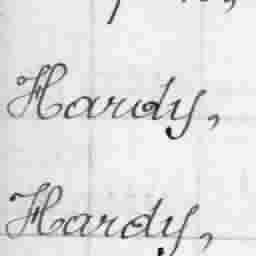 Hardy,
Hardy,